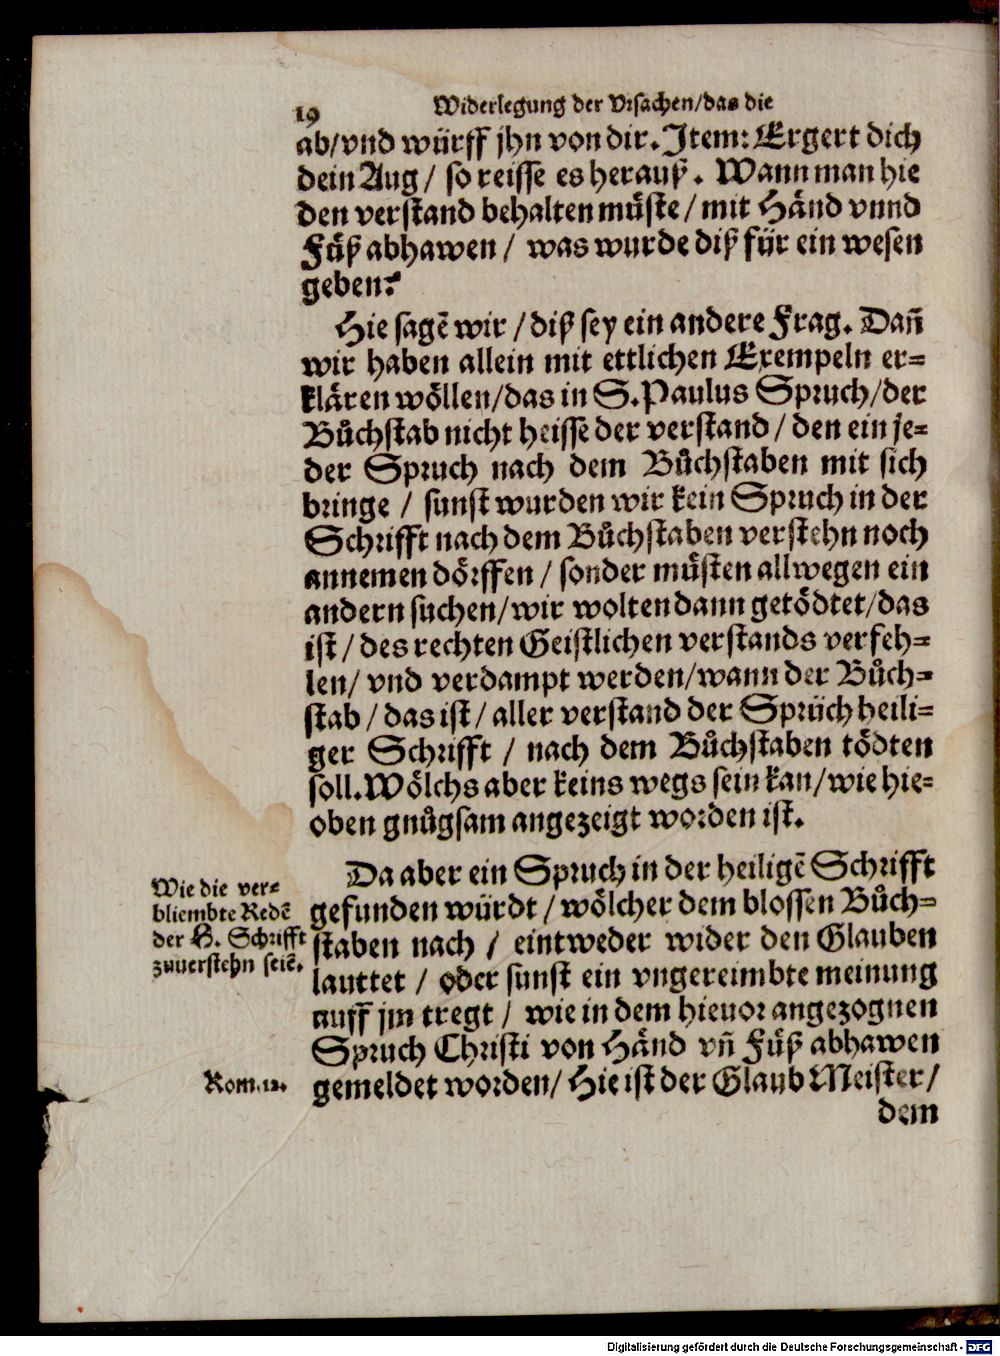 19
Widerlegung der Vrsachen/das die
ab/vnd würff jhn von dir. Item: Ergert dich
dein Aug/ so reisse es herauß. Wann man hie
den verstand behalten můste/ mit Händ vnnd
Füß abhawen/ was wurde diß für ein wesen
geben?
Hie sagẽ wir/ diß sey ein andere Frag. Dañ
wir haben allein mit ettlichen Exempeln er=
klären wöllen/das in S. Paulus Spruch/der
Bůchstab nicht heisse der verstand/ den ein je=
der Spruch nach dem Bůchstaben mit sich
bringe/ sunst wurden wir kein Spruch in der
Schrifft nach dem Bůchstaben verstehn noch
annemen dörffen/ sonder müsten allwegen ein
andern suchen/wir wolten dann getödtet/das
ist/ des rechten Geistlichen verstands verfeh=
len/ vnd verdampt werden/wann der Bůch=
stab/ das ist/ aller verstand der Sprüch heili=
ger Schrifft/ nach dem Bůchstaben tödten
soll. Wölchs aber keins wegs sein kan/wie hie=
oben gnůgsam angezeigt worden ist.
Da aber ein Spruch in der heiligẽ Schrifft
gefunden würdt/ wölcher dem blossen Bůch=
staben nach/ eintweder wider den Glauben
lauttet/ oder sunst ein vngereimbte meinung
auff jm tregt/ wie in dem hieuor angezognen
Spruch Christi von Händ vñ Füß abhawen
gemeldet worden/ Hie ist der Glaub Meister/
dem
Wie die ver=
bliembte Redẽ
der H. Schrifft
zuuerstehn seiẽ.
Rom. 12.
Digitalisierung gefördert durch die Deutsche Forschungsgemeinschaft - DFG